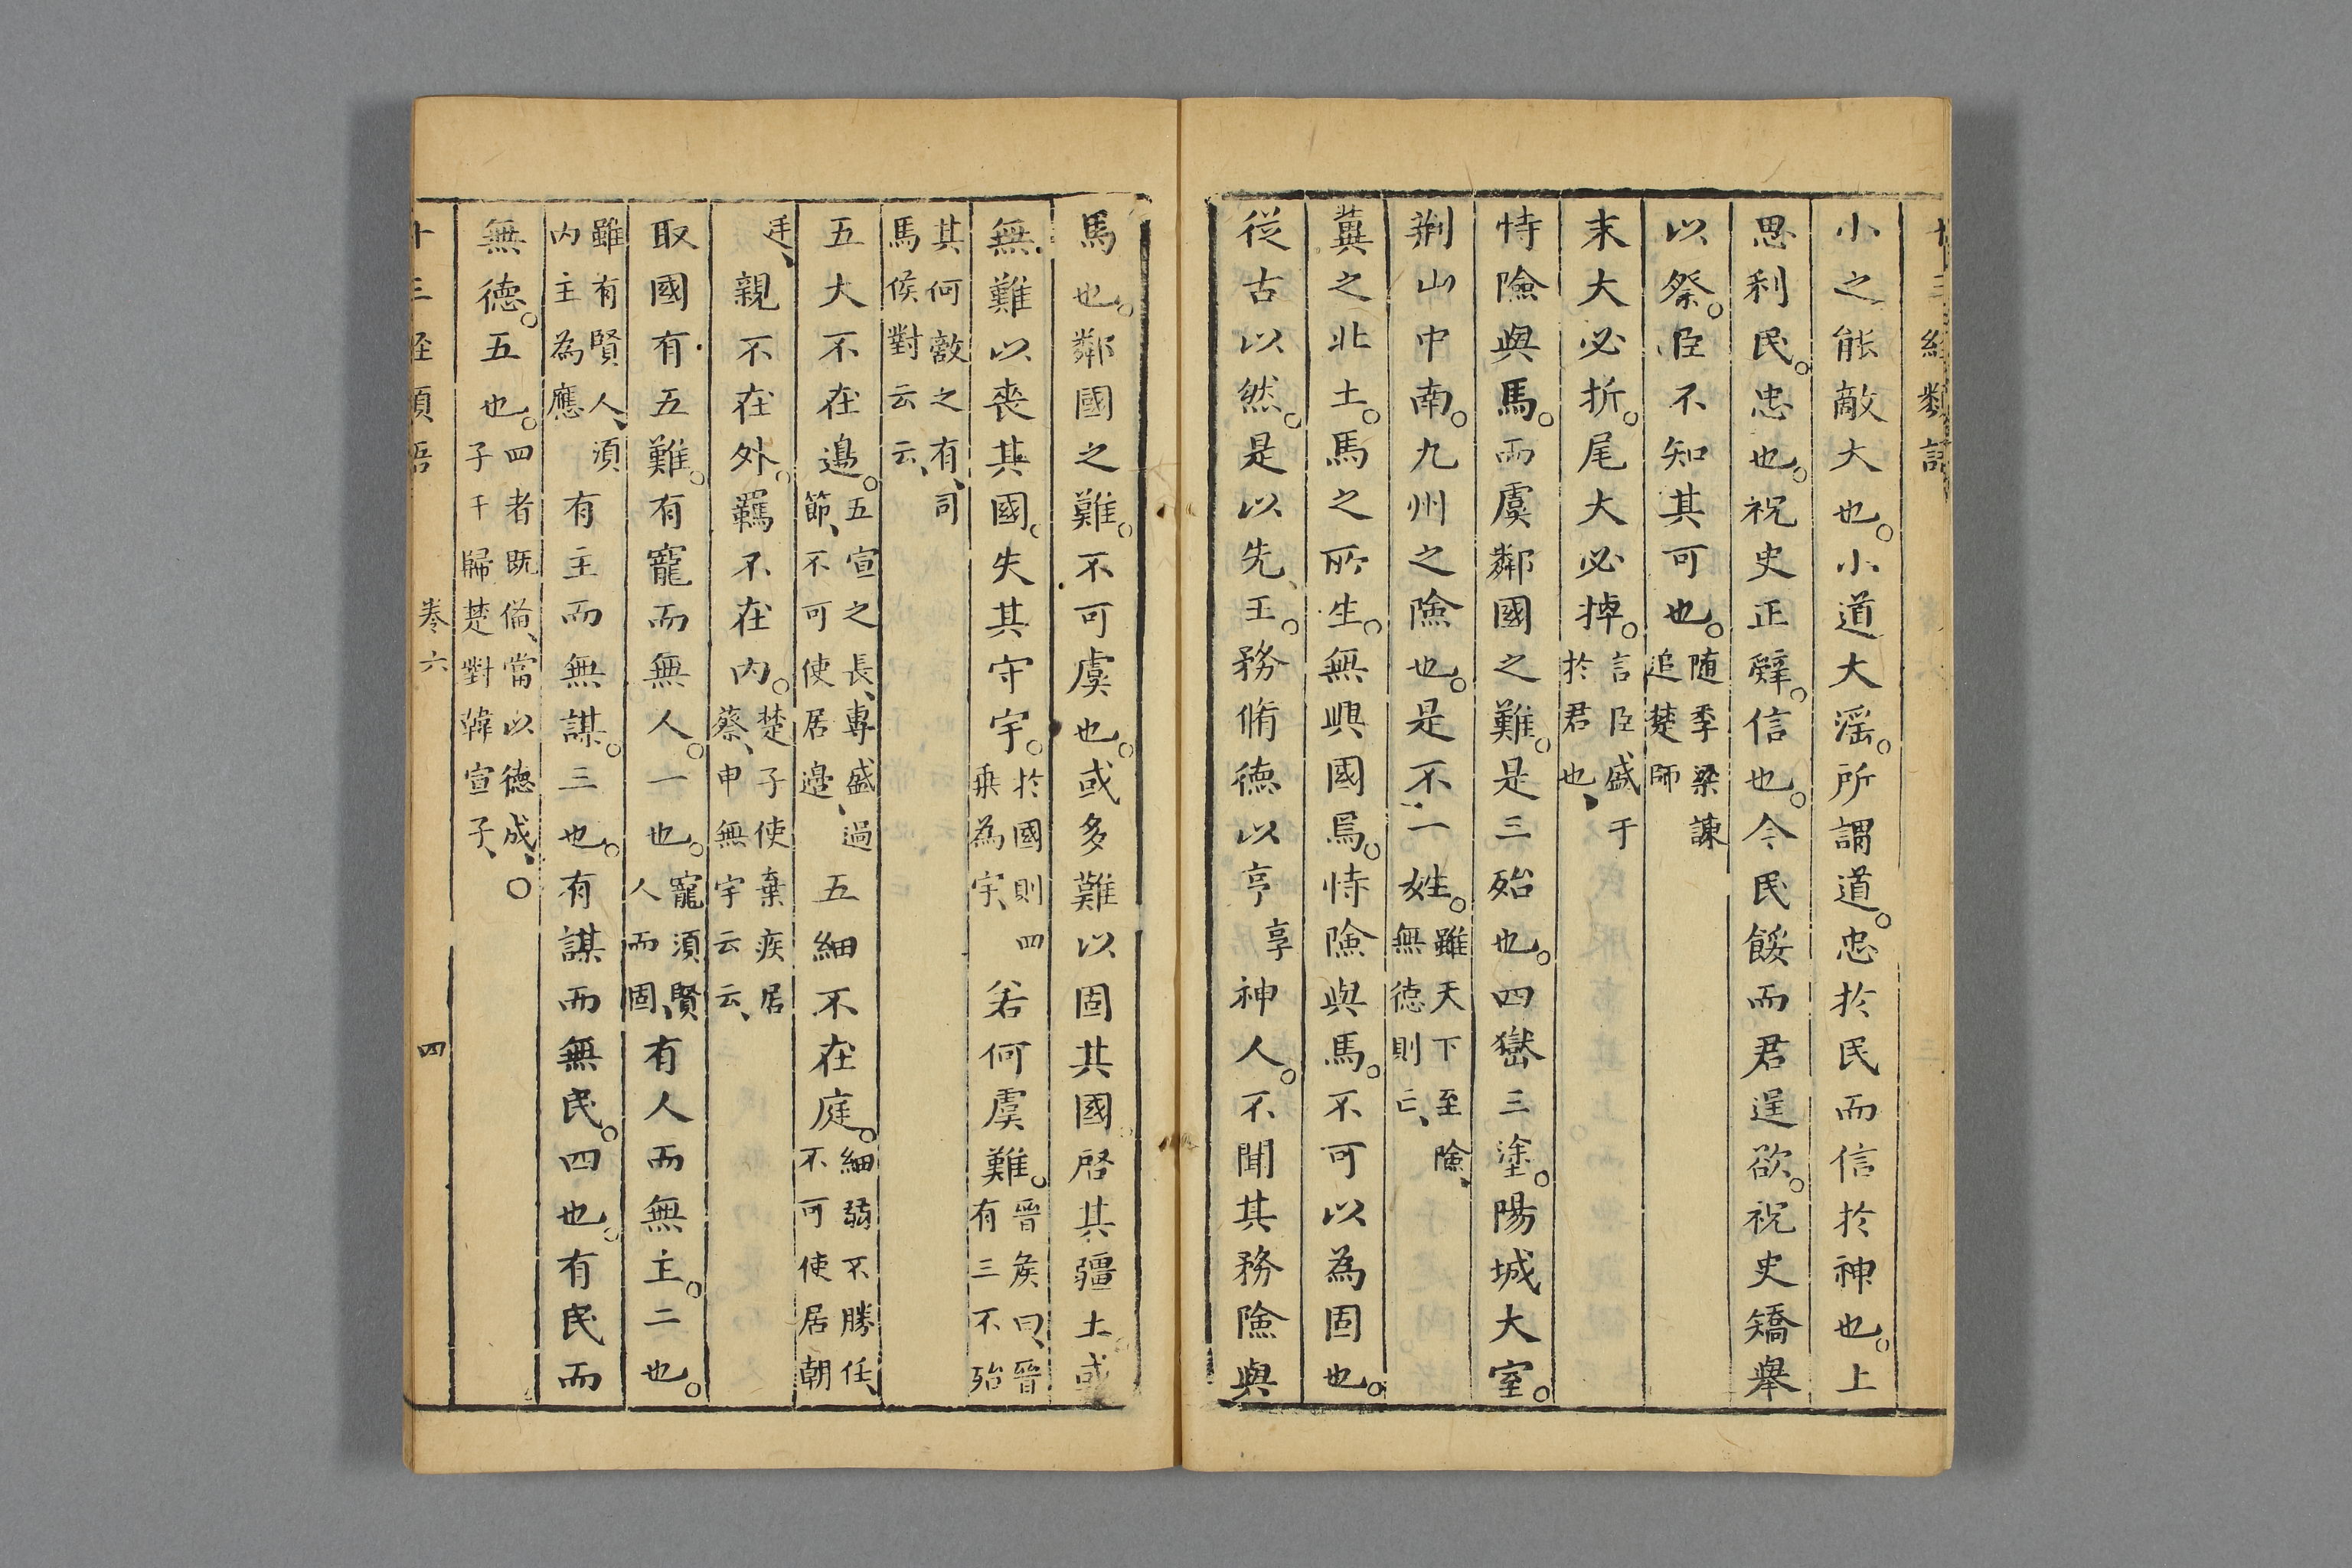 小之能敵大也。小道大滛。所謂道。忠於民而信於神也。上
思利民。忠也。祝史正辤。信也。今民餒而君逞欲。祝史矯舉
以祭。臣不知其可也。随季梁諫追楚師
末大必折。尾大必掉。言臣盛于於君也、
恃險與馬。而虞鄰國之難。是三殆也。四嶽三塗。陽城大室。
荆山中南。九州之險也。是不一姓。雖天下至險、無德則亡、
冀之北土。馬之所生。無興國焉。恃險與馬。不可以為固也。
從古以然。是以先王。務脩德以亨享神人。不聞其務險與
馬也。鄰國之難。不可虞也。或多難以固其國啓其疆土或
無難以丧其國。失其守宇。於國則四乗為宇、若何虞難。晉矦曰、晉有三不殆
其何敵之有、司馬侯對云云、
五大不在邉。五宣之長、專盛、過節、不可使居邉五細不在庭。細弱不勝任、不可使居朝
廷、親不在外。羈不在内。楚子使棄疾居蔡、申無宇云云、
取國有五難。有寵而無人。一也。寵須賢人而固、有人而無主。二也。
雖有賢人、須内主為應有主而無謀。三也。有謀而無民。四也。有民而
無德。五也。四者既俻、當以德成、子干歸楚對韓宣子、○
卷六
四